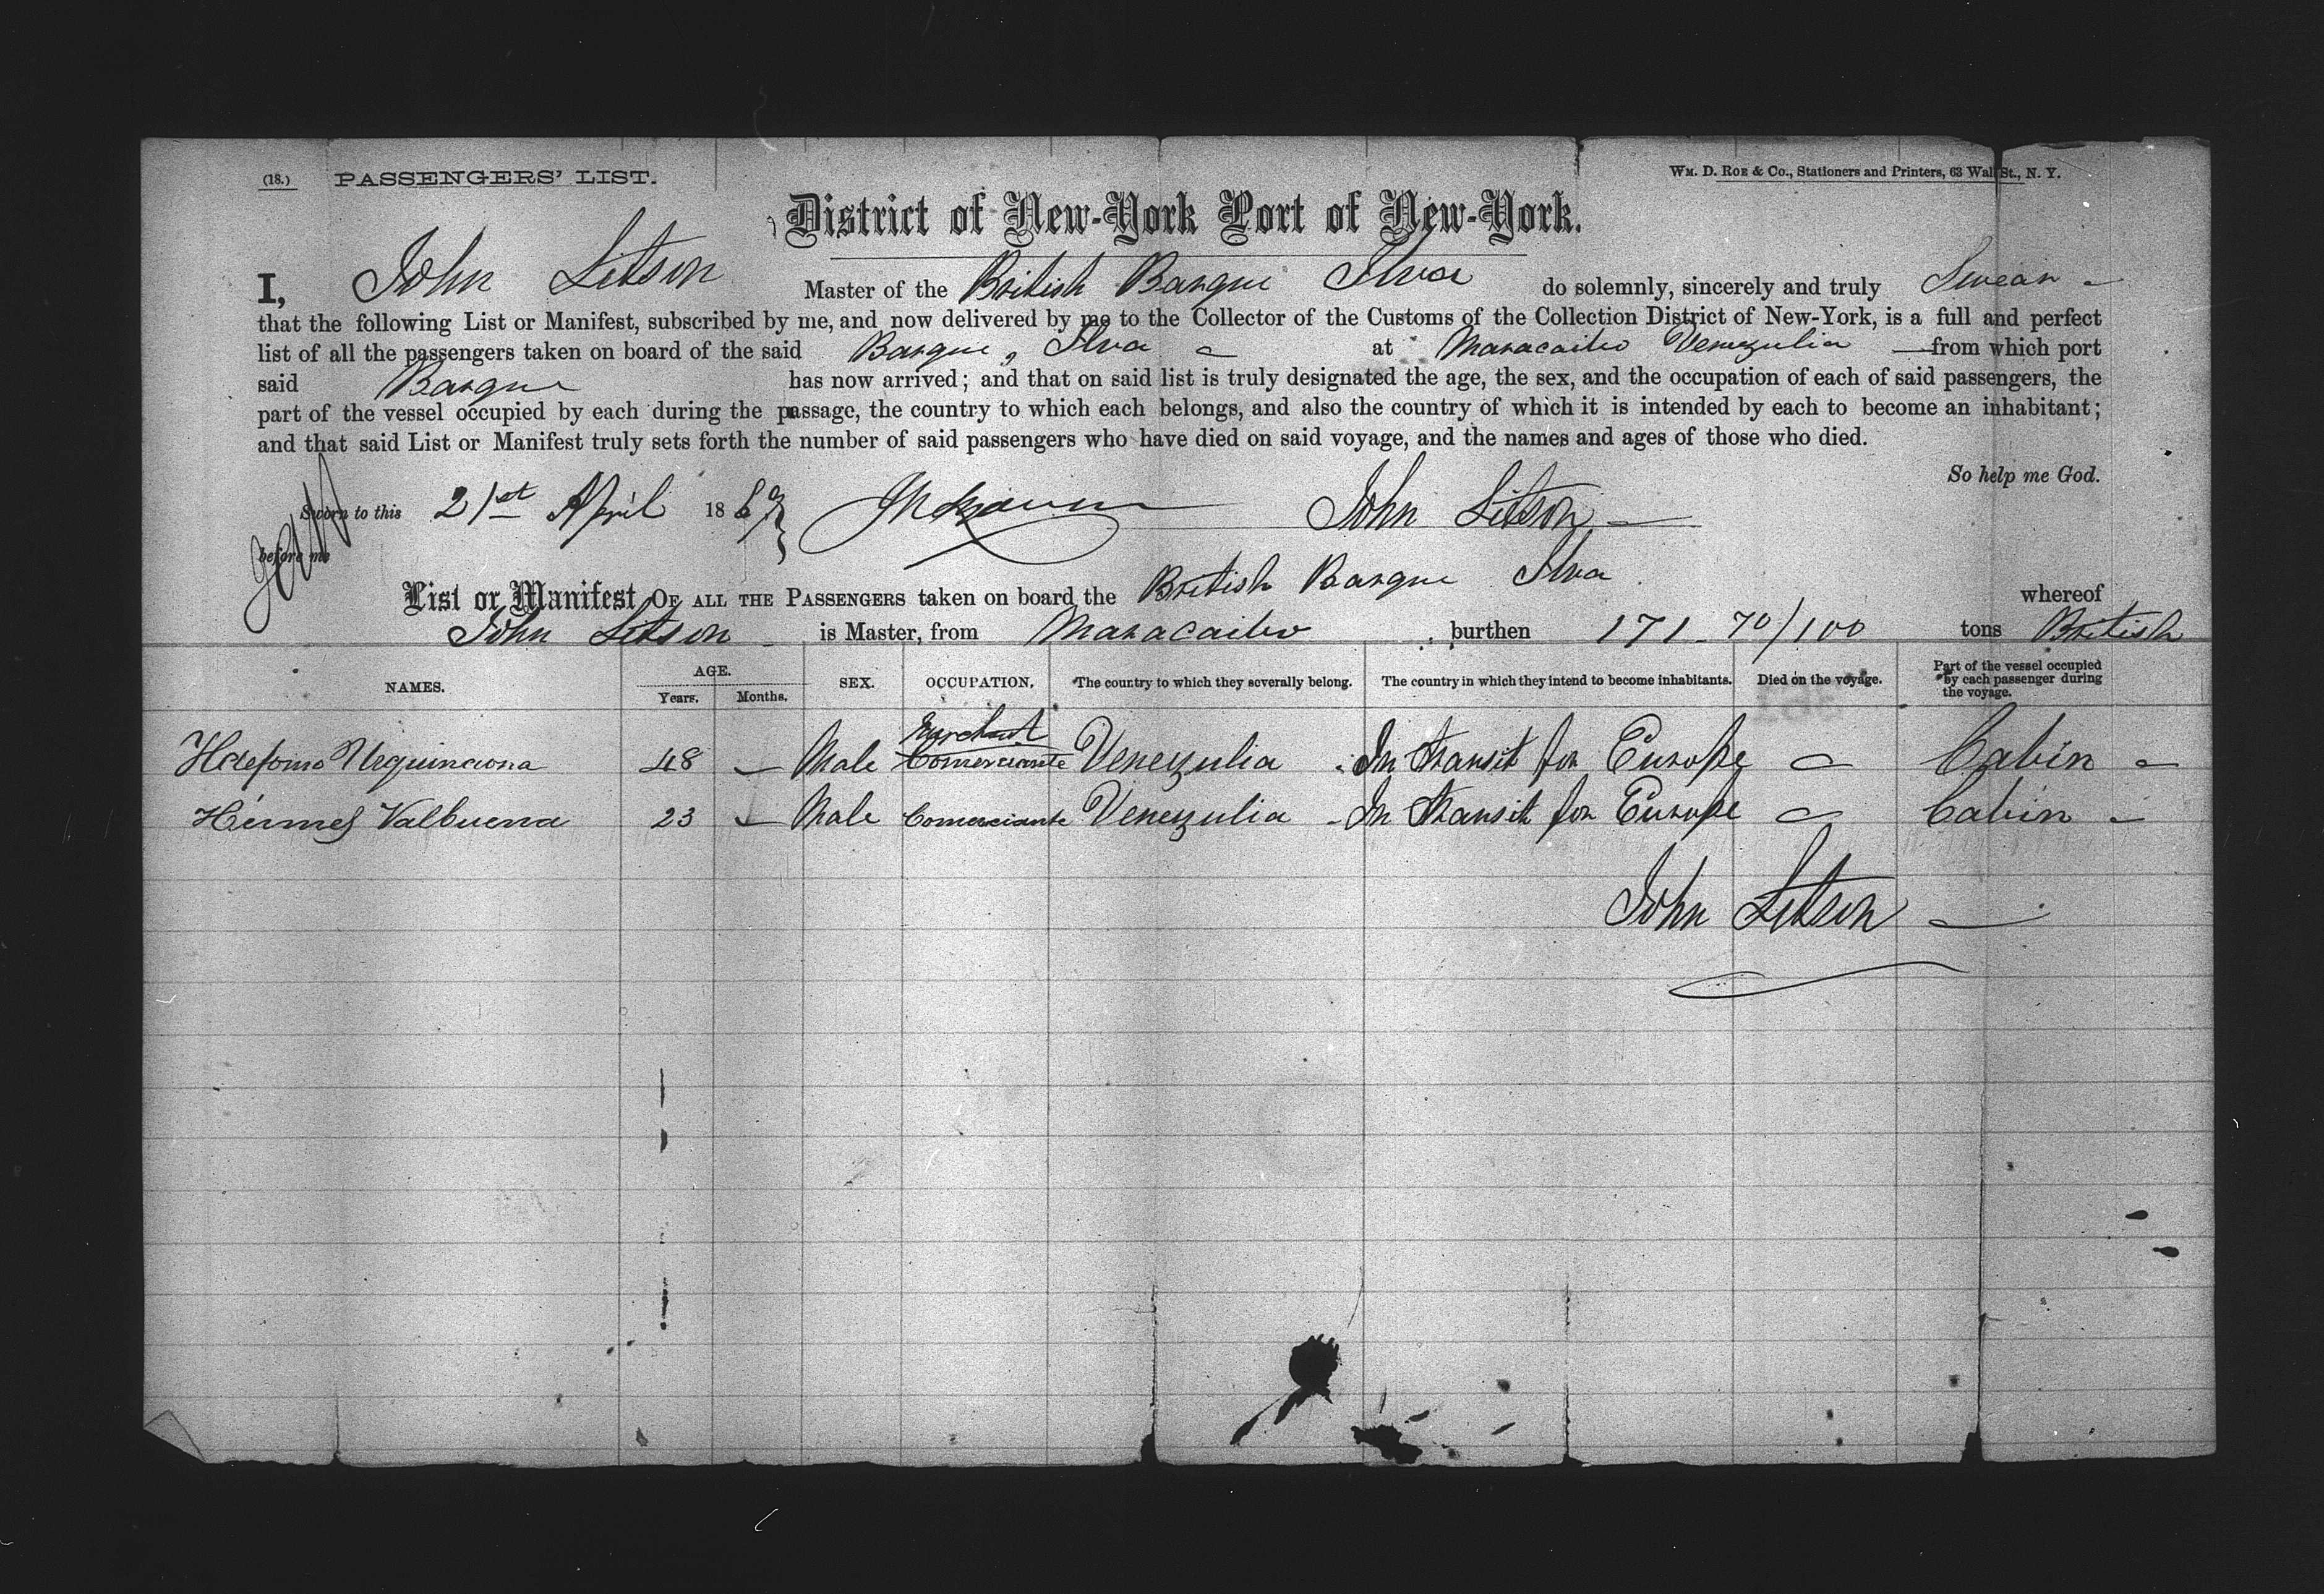 (18.) PASSENGERS' LIST.
WM. D. ROE & CO., Stationers and Printers, 63 Wall St., N. Y.
District of New-York Port of New-York.
I, John Litson Master of the British Barque Ilva do solemnly, sincerely and truly Swear
that the following List or Manifest, subscribed by me, and now delivered by me to the Collector of the Customs of the Collection District of New-York, is a full and perfect
list of all the passengers taken on board of the said Barque, Ilva at Maracaibo Venezulia from which port
said Barque has now arrived; and that on said list is truly designated the age, the sex, and the occupation of each of said passengers, the
part of the vessel occupied by each during the passage, the country to which each belongs, and also the country of which it is intended by each to become an inhabitant;
and that said List or Manifest truly sets forth the number of said passengers who have died on said voyage, and the names and ages of those who died.
So help me God.
Sworn to this 21st April 18 John Litson
before me
List or Manifest OF ALL THE PASSENGERS taken on board the British Barque Ilva whereof
John Litson is Master, from Maracaibo burthen 171 70/100 tons British
NAMES. AGE. Years. Months. SEX. OCCUPATION. The country to which they severally belong. The country in which they intend to become inhabitants. Died on the voyage. Part of the vessel occupied by each passenger during the voyage.
Merchant
Ildefonso Urquinaona 48 Male Comerciante Venezulia In transit for Europe Cabin
Hermes Valbuena 23 Male Comerciante Venezulia In transit for Europe Cabin
John Litson